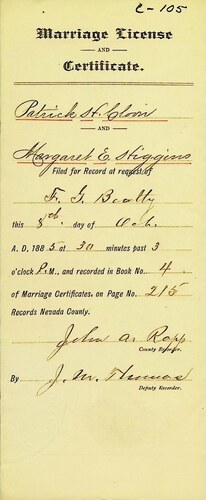 C-105
Marriage License
AND
Certificate.
Patrick H. Cloin
AND
Margaret E. Higgins
Filed for Record at request of
F. G. Beatty
this 8th. day of Oct.
A. D. 1885 at 30 minutes past 3
o'clock P. M., and recorded in Book No. 4
of Marriage Certificates, on Page No. 215
Records Nevada County.
John A. Rapp
County Recorder.
By J. M. Thomas
Deputy Recorder.